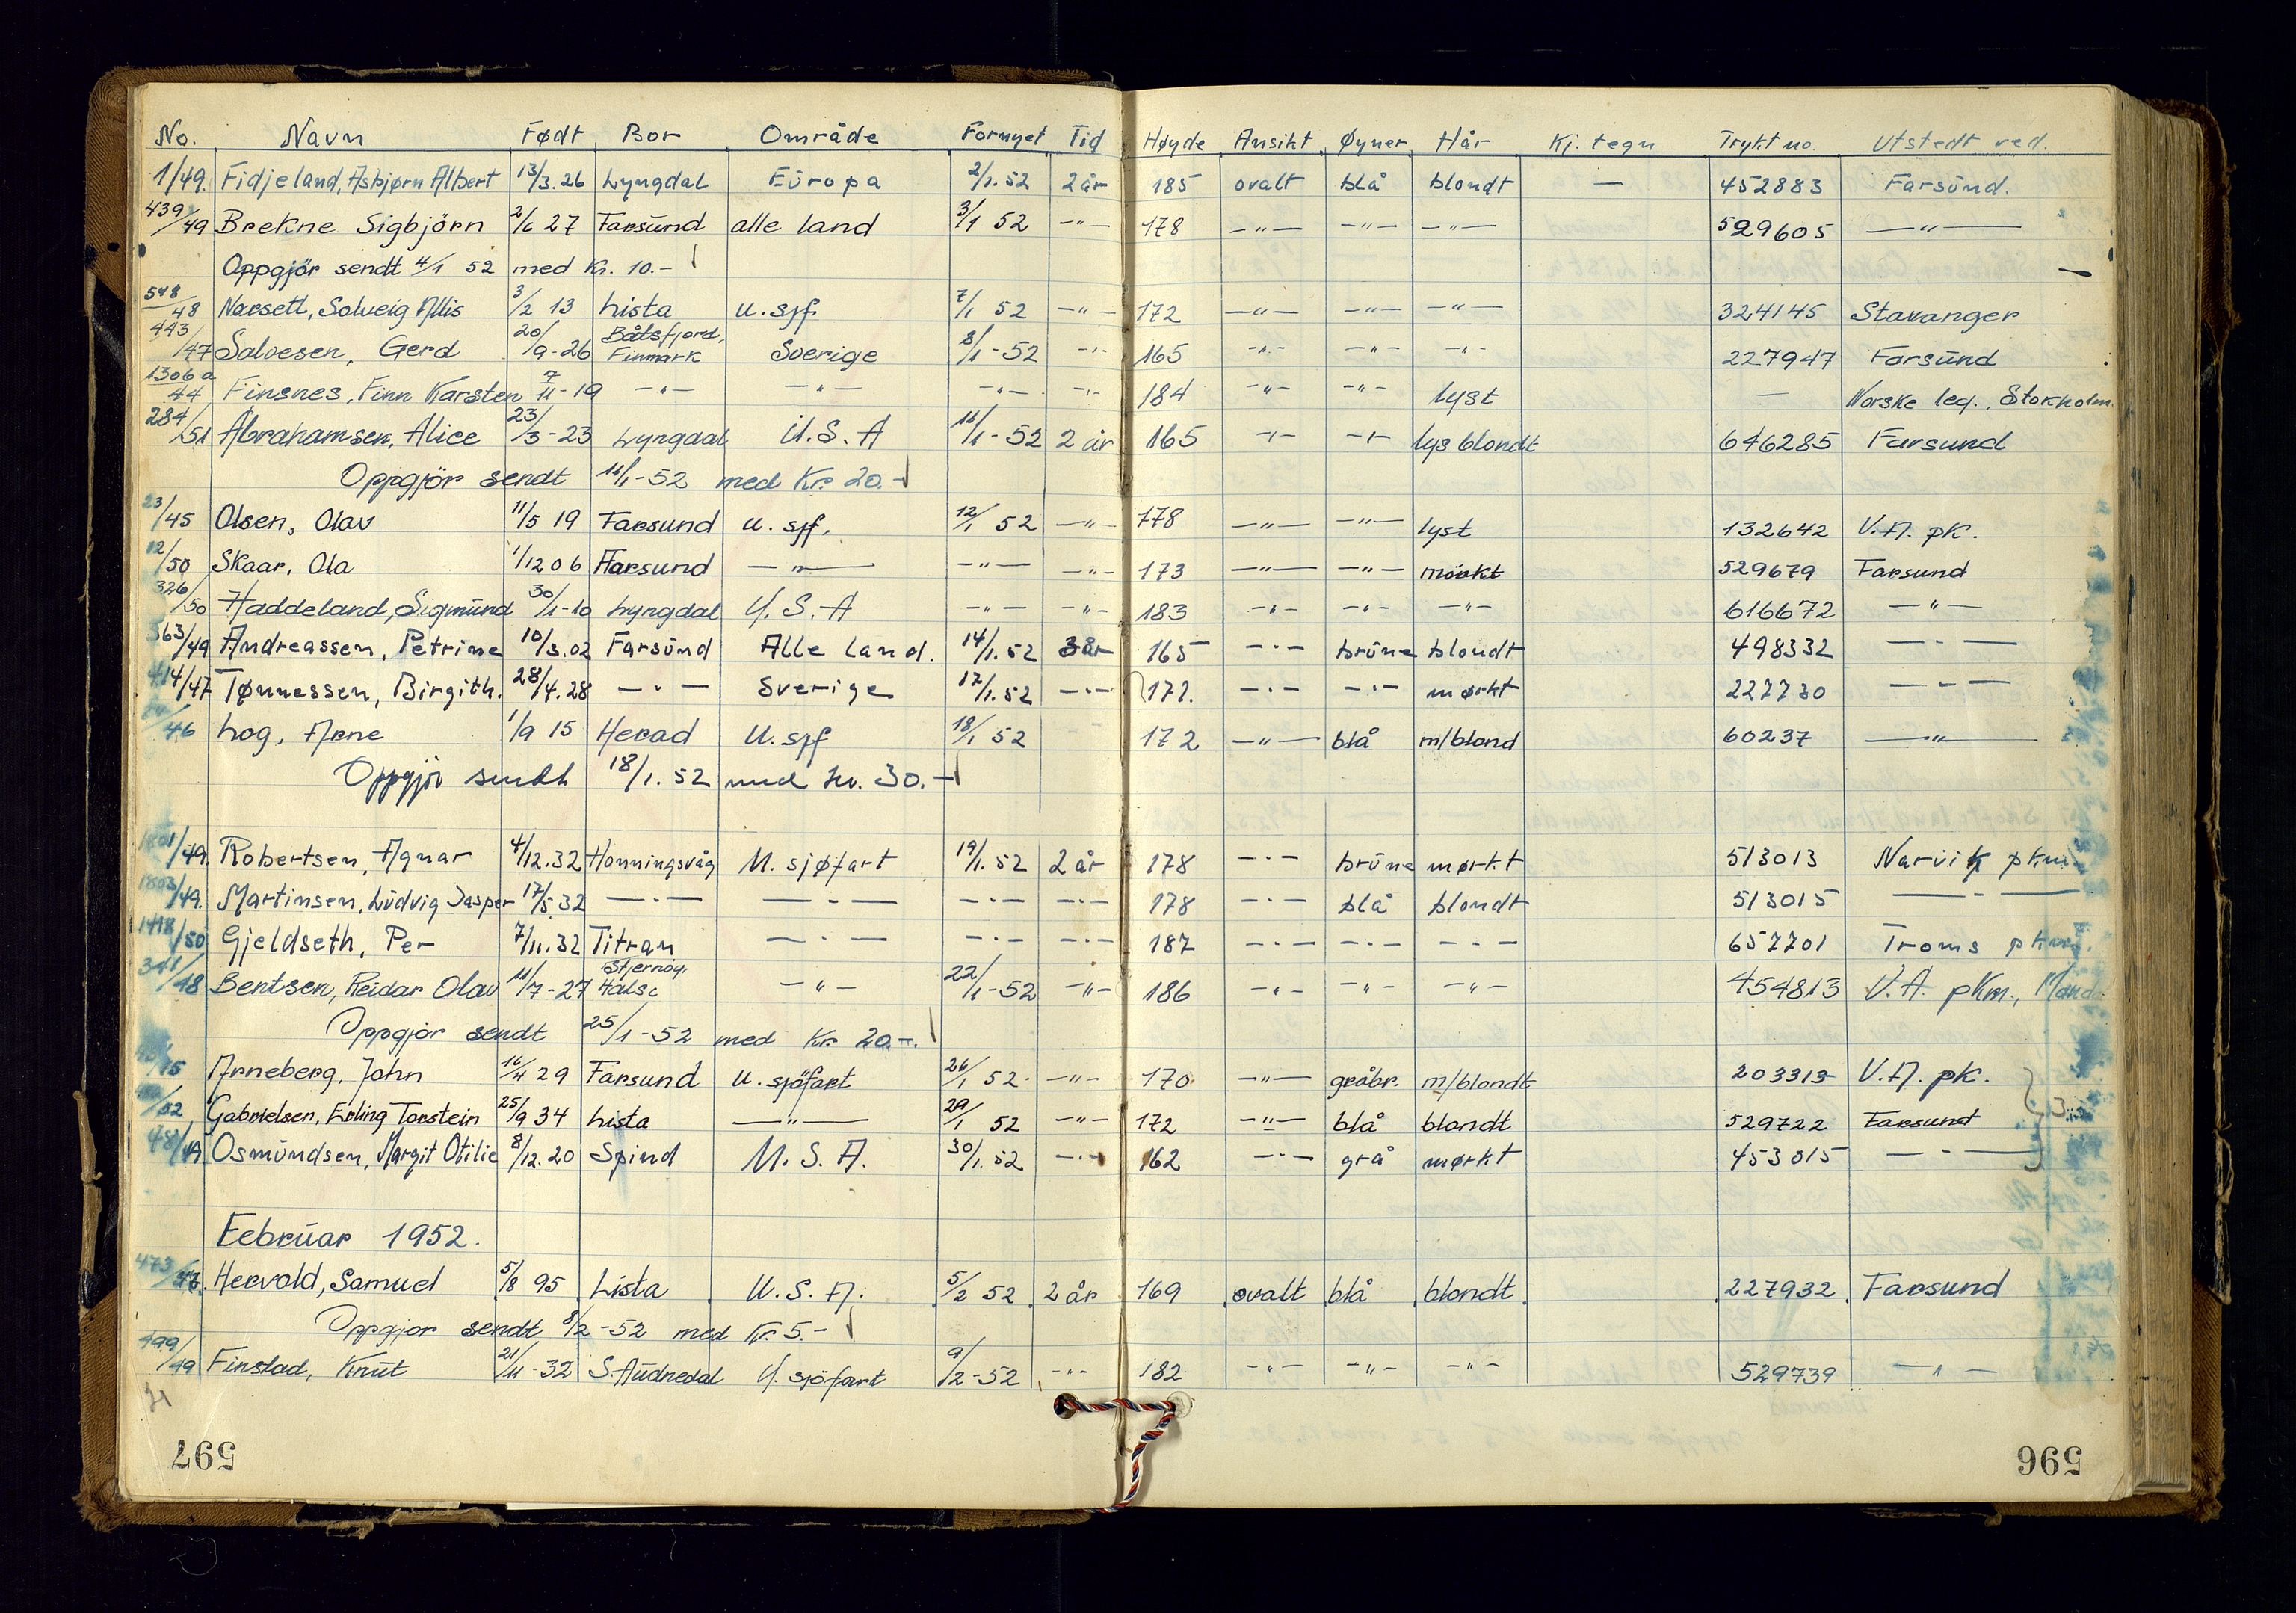 No. Navn Født Bor Område Fornyet Tid Høyde Ansikt Øyner Hår Kj. tegn Trykt no. Utstedt ved.
1/49. Fidjeland, Asbjørn Albert 13/3.26 Lyngdal Europa 2/1.52 2 år 185 ovalt blå blondt — 452883 Farsund.
439/49 Brekne Sigbjörn 2/6 27 Farsund alle land 3/1 52 -"- 178 -"- -"- -"- 529605 -"-
Oppgjör sendt 4/1 52 med Kr. 10.-
548/48 Nærsett, Solveig Allis 3/2 13 Lista u. sjf 7/1 52 -"- 172 -"- -"- -"- 324145 Stavanger
443/47 Salvesen, Gerd 20/9-26 Båtsfjord, Finmark Sverige 8/1-52 -"- 165 -"- -"- -"- 227947 Farsund
1306a/44 Finsnes, Finn Karsten 7/11-19 -"- -"- -"- -"- 184 -"- -"- lyst — Norske leg., Stokholm.
284/51 Abrahamsen, Alice 23/3-23 Lyngdal U.S.A 11/1-52 2 år 165 -"- -"- lys blondt 646285 Farsund
Oppgjör sendt 11/1-52 med Kr. 20.-
23/45 Olsen, Olav 11/5 19 Farsund u. sjf. 12/1 52 -"- 178 -"- -"- lyst 132642 V.A. pk.
12/50 Skaar, Ola 1/12 06 Farsund -"- -"- -"- 173 -"- -"- mörkt 529679 Farsund
326/50 Haddeland, Sigmund 30/1-10 Lyngdal U.S.A -"- -"- 183 -"- -"- -"- 616672 -"-
363/49 Andreassen, Petrine 10/3.02 Farsund Alle land. 14/1.52 3 år 165 -"- brune blondt 498332 -"-
414/47 Tønnessen, Birgith. 28/4.28 -"- Sverige 17/1.52 -"- 171. -"- -"- mørkt 227730 -"-
/46 Log, Arne 1/9 15 Herad U. sjf 18/1 52 172 -"- blå m/blond 60237 -"-
Oppgjör sendt 18/1.52 med kr. 30.-
1801/49. Robertsen, Agnar 4/12.32 Honningsvåg U. sjøfart 19/1.52 2 år 178 -"- brune mørkt 513013 Narvik pkm.
1803/49. Martinsen, Ludvig Jasper 17/5.32 -"- -"- -"- -"- 178 -"- blå blondt 513015 -"-
1418/50 Gjeldseth, Per 7/11.32 Titran -"- -"- -"- 187 -"- -"- -"- 657701 Troms pkm.
341/48 Bentsen, Reidar Olav 11/7-27 Stjernøy, Halse -"- 22/1-52 -"- 186 -"- -"- -"- 454813 V.A. pkm., Mandal
Oppgjör sendt 25/1-52 med Kr. 20.-
/45 Arneberg, John 16/4 29 Farsund u. sjöfart 26/1 52 -"- 170 -"- gråbr. m/blondt 203313 V.A. pk.
/52 Gabrielsen, Erling Torstein 25/9 34 Lista -"- 29/1 52 -"- 172 -"- blå blondt 529722 Farsund 3
48/49. Osmundsen, Margit Otilie 8/12.20 Spind U.S.A. 30/1.52 -"- 162 -"- grå mørkt 453015 -"-
Februar 1952.
473/47. Hervold, Samuel 5/8 95 Lista U.S.A. 5/2 52 2 år 169 ovalt blå blondt 227932 Farsund
Oppgjör sendt 8/2-52 med Kr. 5.-
499/49 Finstad, Knut 21/11-32 S. Audnedal U. sjöfart 9/2-52 -"- 182 -"- -"- -"- 529739 -"-
597 596